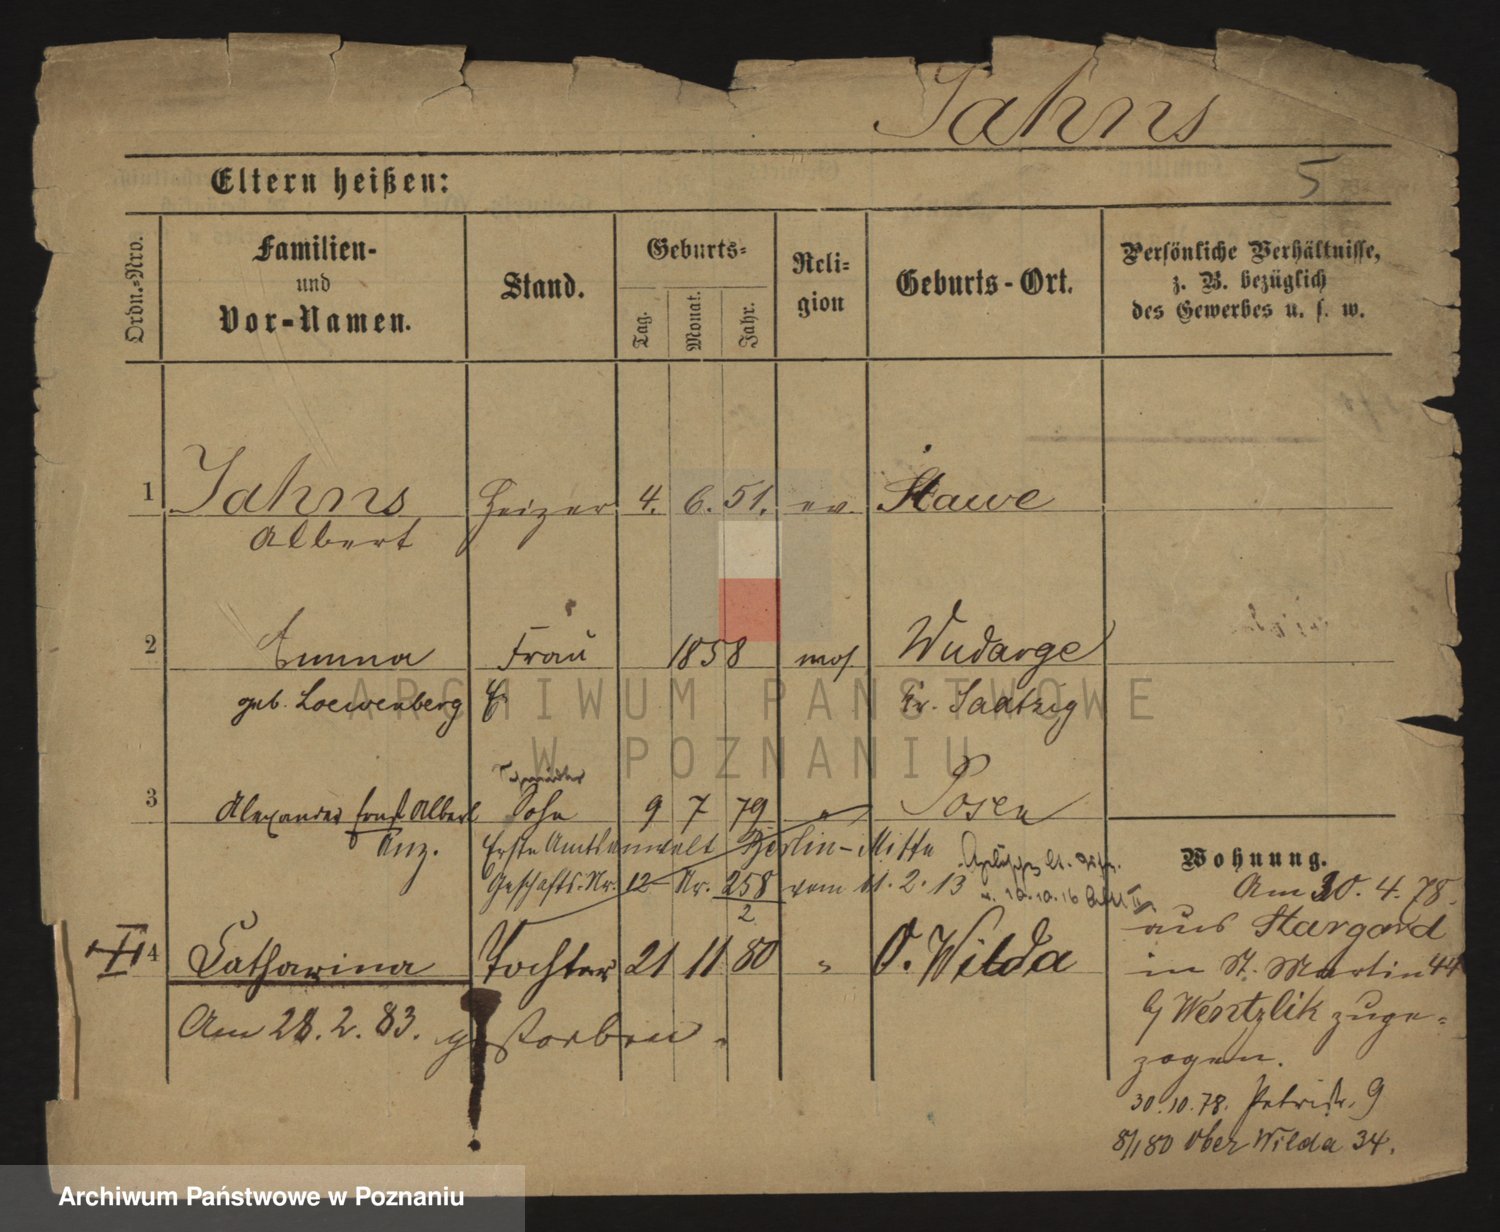 Jahns
5
Eltern heißen:
Ordn.-Nro.
Familien-
und
Vor-Namen.
Stand.
Geburts-
Tag.
Monat.
Jahr.
Reli-
gion
Geburts-Ort.
Persönliche Verhältnisse,
z. B. bezüglich
des Gewerbes u. s. w.
1 Jahns Heizer 4. 6. 51. ev. Stawe
Albert
2 Emma Frau 1858 mos Wudarge
geb. Loewenberg Kr. Saatzig
3 Alexander Ernst Albert Sohn 9 7 79 " Posen
Anz. Erste Amtsanwalt Berlin-Mitte
Geschäfts-Nr. 12 Nr. 258/2 vom 11. 2. 13
4 Catharina Tochter 21 11 80 " O. Wilda
Am 28. 2. 83. gestorben.
Wohnung.
Am 30. 4. 78.
aus Stargard
in St. Martin 44
Wentzlik zuge-
zogen.
30.10.78. Petristr. 9
8/1 80 Ober Wilda 34.
ARCHIWUM PAŃSTWOWE
W POZNANIU
Archiwum Państwowe w Poznaniu